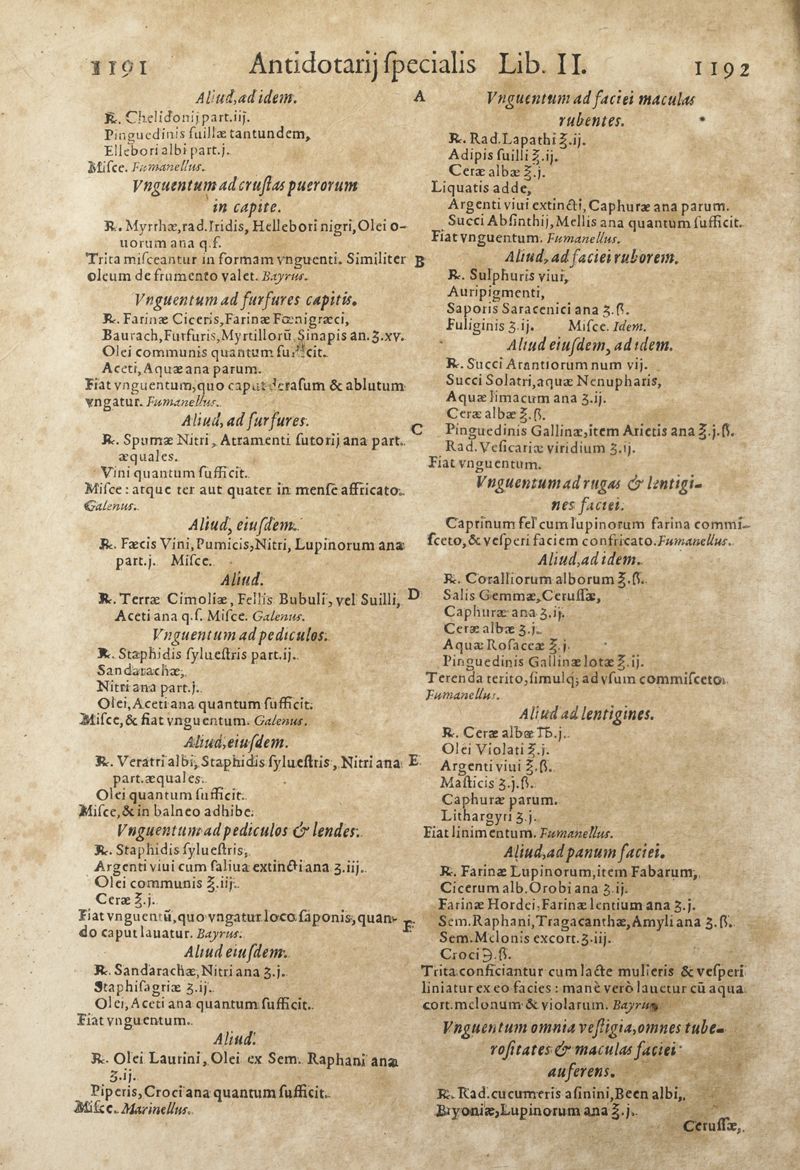 1191 Antidotarij ſpecialis Lib. II. 1192
Aliud, ad idem.
℞. Chelidonij part.iij.
Pinguedinis ſuillæ tantundem,
Ellebori albi part.j.
Miſce. Fumanellus.
Vnguentum ad cruſtas puerorum
in capite.
℞. Myrrhæ, rad. Iridis, Hellebori nigri, Olei o-
uorum ana q.ſ.
Trita miſceantur in formam vnguenti. Similiter
oleum de frumento valet. Bayrus.
Vnguentum ad furfures capitis.
℞. Farinæ Ciceris, Farinæ Fœnigræci,
Baurach, Furfuris, Myrtillorū, Sinapis an.ʒ.xv.
Olei communis quantum ſufficit.
Aceti, Aquæ ana parum.
Fiat vnguentum, quo caput derafum & ablutum
vngatur. Fumanellus.
Aliud, ad furfures.
℞. Spumæ Nitri, Atramenti ſutorij ana part.
æquales.
Vini quantum ſufficit.
Miſce: atque ter aut quater in menſe affricato.
Galenus.
Aliud, eiuſdem.
℞. Fæcis Vini, Pumicis, Nitri, Lupinorum ana
part.j. Miſce.
Aliud.
℞. Terræ Cimoliæ, Fellis Bubuli, vel Suilli,
Aceti ana q.ſ. Miſce. Galenus.
Vnguentum ad pediculos.
℞. Staphidis ſylueſtris part.ij.
Sandarachæ,
Nitri ana part.j.
Olei, Aceti ana quantum ſufficit.
Miſce, & fiat vnguentum. Galenus.
Aliud, eiuſdem.
℞. Veratri albi, Staphidis ſylueſtris, Nitri ana
part. æquales.
Olei quantum ſufficit.
Miſce, & in balneo adhibe.
Vnguentum ad pediculos & lendes.
℞. Staphidis ſylueſtris,
Argenti viui cum ſaliua extincti ana ʒ.iij.
Olei communis ℥.iij.
Ceræ ℥.j.
Fiat vnguentū, quo vngatur loco ſaponis, quan-
do caput lauatur. Bayrus.
Aliud eiuſdem.
℞. Sandarachæ, Nitri ana ʒ.j.
Staphiſagriæ ʒ.ij.
Olei, Aceti ana quantum ſufficit.
Fiat vnguentum.
Aliud.
℞. Olei Laurini, Olei ex Sem. Raphani ana
ʒ.ij.
Piperis, Croci ana quantum ſufficit.
Miſce. Marinellus.
A
B
C
D
E
F
Vnguentum ad faciei maculas
rubentes.
℞. Rad. Lapathi ℥.ij.
Adipis ſuilli ℥.ij.
Ceræ albæ ℥.j.
Liquatis adde,
Argenti viui extincti, Caphuræ ana parum.
Succi Abſinthij, Mellis ana quantum ſufficit.
Fiat vnguentum. Fumanellus.
Aliud, ad faciei ruborem.
℞. Sulphuris viui,
Auripigmenti,
Saporis Saracenici ana ʒ.ß.
Fuliginis ʒ.ij. Miſce. Idem.
Aliud eiuſdem, ad idem.
℞. Succi Arantiorum num vij.
Succi Solatri, aquæ Nenupharis,
Aquæ limacum ana ʒ.ij.
Ceræ albæ ℥.ß.
Pinguedinis Gallinæ, item Arietis ana ℥.j.ß.
Rad. Veſicariæ viridium ʒ.ij.
Fiat vnguentum.
Vnguentum ad rugas & lentigi-
nes faciei.
Caprinum fel cum lupinorum farina commi-
ſceto, & veſperi faciem confricato. Fumanellus.
Aliud, ad idem.
℞. Coralliorum alborum ℥.ß.
Salis Gemmæ, Ceruſſæ,
Caphuræ ana ʒ.ij.
Ceræ albæ ʒ.j.
Aquæ Roſaceæ ℥.j.
Pinguedinis Gallinæ lotæ ℥.ij.
Terenda terito, ſimulq; ad vſum commiſceto.
Fumanellus.
Aliud ad lentigines.
℞. Ceræ albæ ℔.j.
Olei Violati ℥.j.
Argenti viui ℥.ß.
Maſticis ʒ.j.ß.
Caphuræ parum.
Lithargyri ʒ.j.
Fiat linimentum. Fumanellus.
Aliud, ad panum faciei.
℞. Farinæ Lupinorum, item Fabarum,
Cicerum alb. Orobi ana ʒ.ij.
Farinæ Hordei, Farinæ lentium ana ʒ.j.
Sem. Raphani, Tragacanthæ, Amyli ana ʒ.ß.
Sem. Melonis excort. ʒ.iij.
Croci ℈.ß.
Trita conficiantur cum lacte mulieris & veſperi
liniatur ex eo facies: manè verò lauetur cū aqua
cort. melonum & violarum. Bayrus.
Vnguentum omnia veſtigia, omnes tube-
roſitates & maculas faciei
auferens.
℞. Rad. cucumeris aſinini, Been albi,
Bryoniæ, Lupinorum ana ℥.j.
Ceruſſæ,